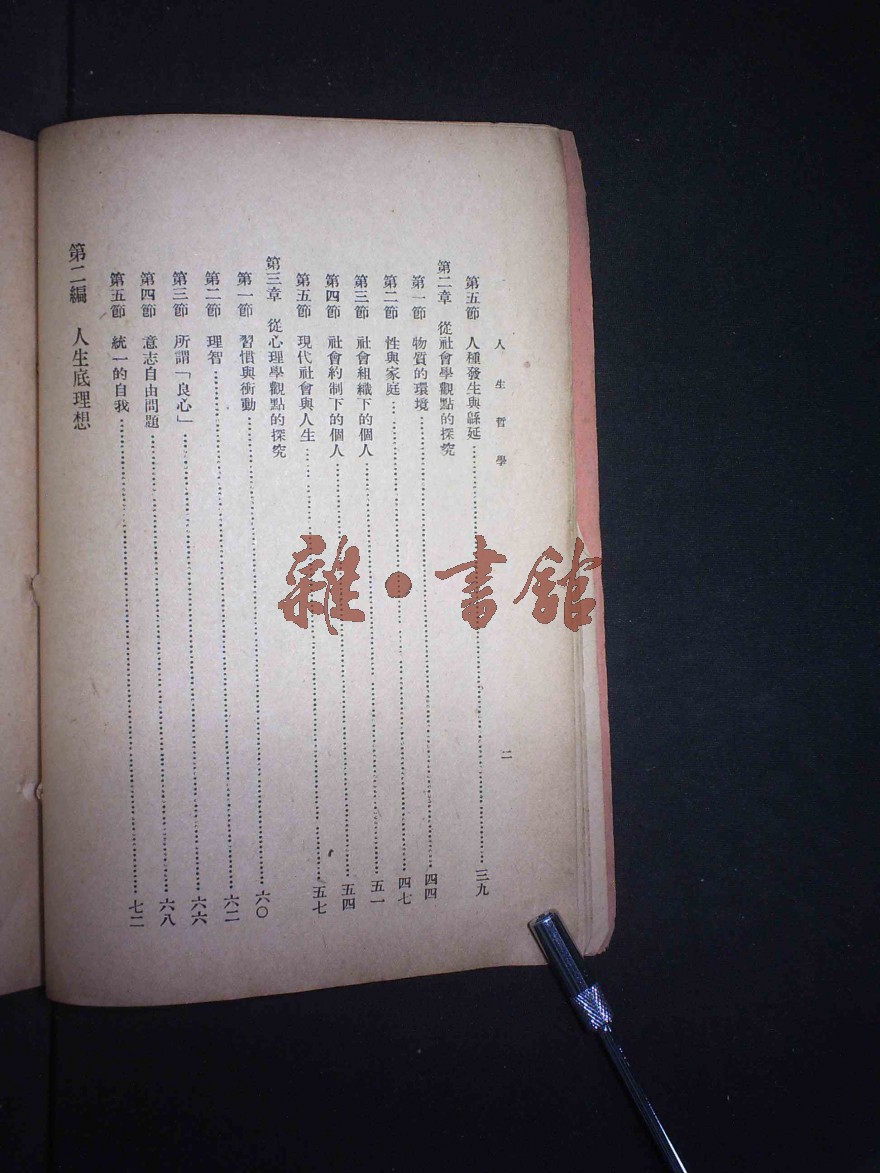 人生哲學
二
第五節 人種發生與緜延 三九
第二章 從社會學觀點的探究
第一節 物質的環境 四四
第二節 性與家庭 四七
第三節 社會組織下的個人 五一
第四節 社會約制下的個人 五四
第五節 現代社會與人生 五七
第三章 從心理學觀點的探究
第一節 習慣與衝動 六〇
第二節 理智 六二
第三節 所謂「良心」 六六
第四節 意志自由問題 六八
第五節 統一的自我 七二
第二編 人生底理想
雜·書館